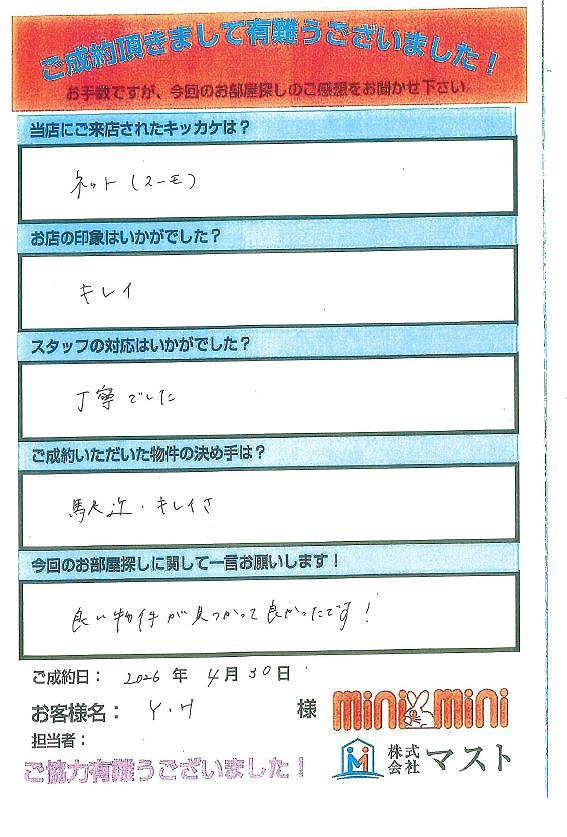 ご成約頂きまして有難うございました！
お手数ですが、今回のお部屋探しのご感想をお聞かせ下さい
当店にご来店されたキッカケは？
ネット(スーモ)
お店の印象はいかがでした？
キレイ
スタッフの対応はいかがでした？
丁寧でした
ご成約いただいた物件の決め手は？
駅近・キレイさ
今回のお部屋探しに関して一言お願いします！
良い物件が見つかって良かったです！
ご成約日： 2026 年 4月30日
お客様名： Y・H 様
mini mini
担当者：
株式会社 マスト
ご協力有難うございました！